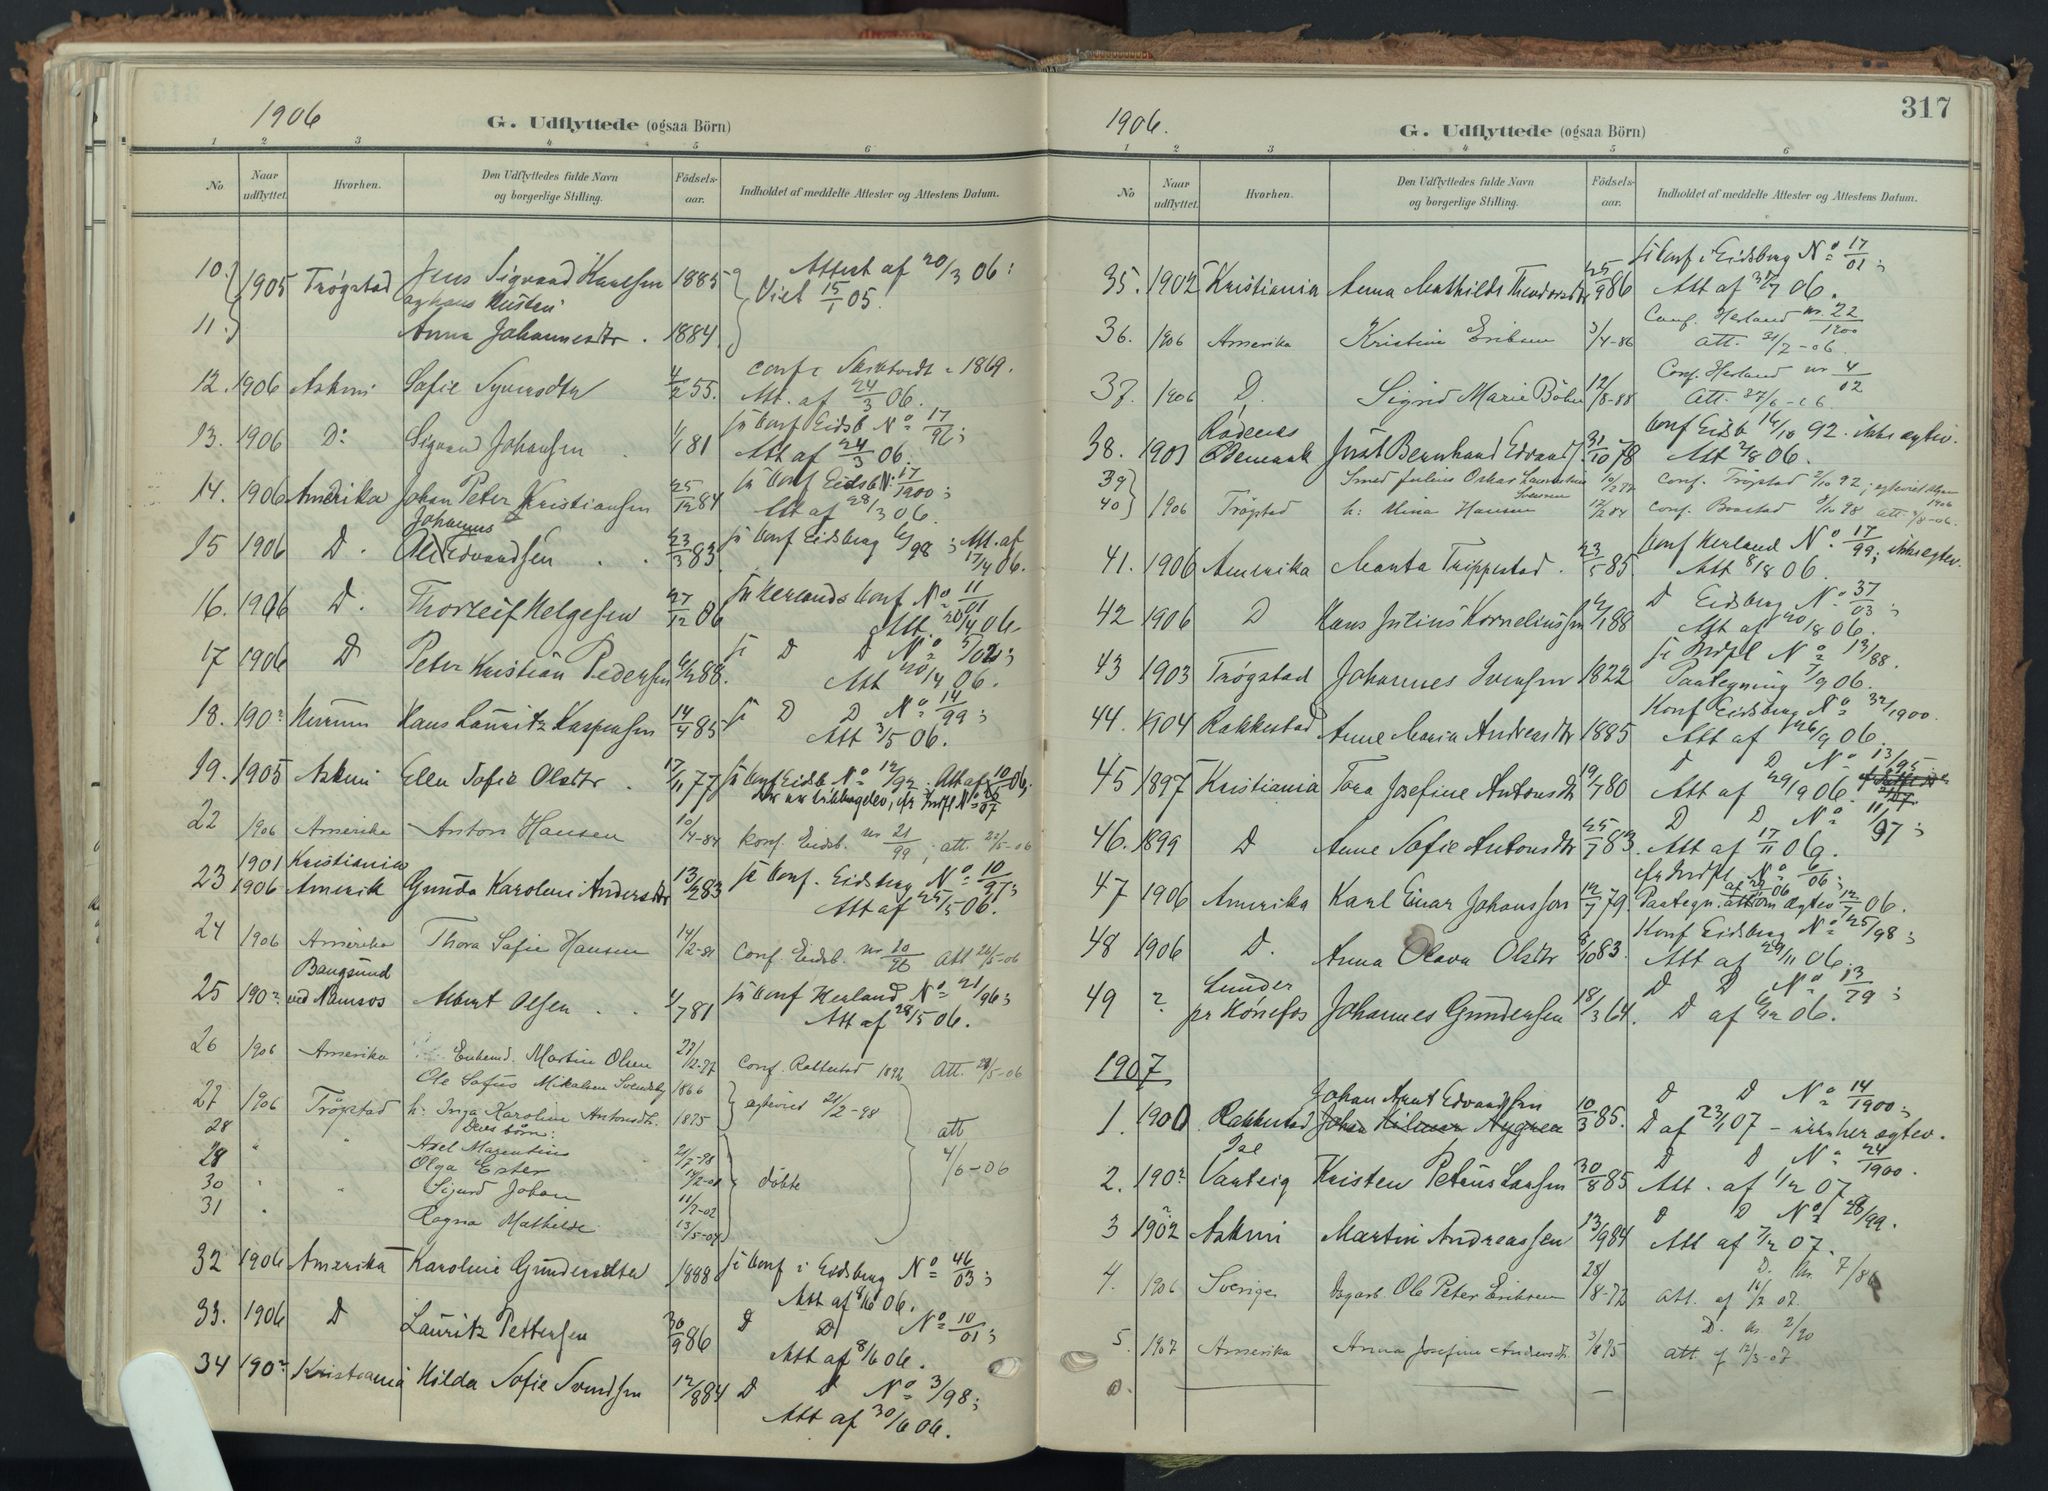 1906
G. Udflyttede (ogsaa Börn)
1 2 3 4 5 6
No. Naar udflyttet. Hvorhen. Den Udflyttedes fulde Navn og borgerlige Stilling. Födsels-aar. Indholdet af meddelte Attester og Attestens Datum.
10. 1905 Trøgstad Jens Sigvaad Karlsen 1885 Attest af 20/3 06:
og hans Hustru Viet 15/1 05.
11. Anna Johannesdtr. 1884
12. 1906 Askim Sofie Syversdtr 4/2 55. conf i 1869.
Att. af 24/3 06.
13. 1906 Do Sigvard Johansen 1/1 81 fr Conf Eidsb No 17/96;
Att af 24/3 06.
14. 1906 Amerika Johan Peter Kristiansen 25/12 84 fr Conf Eidsb N: 17/1900;
Att af 28/3 06.
Johannes
15 1906 D. Ole Edvardsen 23/3 83. fr Conf Eidsberg 6/98; Att. af 17/4 06.
16. 1906 D. Thorleif Helgesen 27/12 86 fr Herlands Conf No 11/01
Att. 20/4 06.
17 1906 D Peter Kristian Pedersen 88. fr D D No 5/02;
Att 20/4 06.
18. 190? Hurum Hans Lauritz Kaspersen 14/4 85 fr D D No 14/99;
Att 3/5 06.
19. 1905 Askim Ella Sofie Olsdtr. 17/11 77 fr Conf Eidsb No 12/92. Att af 10/5 06,
22 1906 Amerika Anton Hansen 10/4-84 Konf. Eidsb. nr 21/99; att. 22/5-06
1901 Kristiania
23 1906 Amerik Gunda Karoline Andersdtr 13/2 83 fr Conf. Eidsberg No 10/97;
Att af 25/5 06.
24 1906 Amerika Thora Sofie Hansen 14/2-81 Conf. Eidsb. nr 10/96 Att 26/5-06
Bangsund
25 190? ved Namsos Albert Olsen 4/7 81 fr Conf Herland No 21/96;
Att af 28/5 06.
26 1906 Amerika Enkemd. Martin Olsen 27/12-77 Conf. Rakkestad 1892 Att. 28/5-06
Ole Sofus Mikalsen Svendsby 1866
27 1906 Trögstad h: Inga Karoline Antonsdtr. 1875 egteviet 21/2-98
28 " " Deres börn: att 4/6-06
Axel Marentius 21/7-98
29 Olga Ester 14/2-01 döbte
30 " " Sigurd Johan 11/2-02
31 " Ragna Mathilde 13/5-04
32 1906 Amerika Karoline Gundersdtr 1888 fr Conf i Eidsberg No 46/03;
Att af 8/6 06.
33. 1906 D Lauritz Pettersen 30/9 86 D D No 10/01;
Att af 8/6 06.
34 190? Kristiania Hilda Sofie Svendsen 12/8 84 D D No 3/98;
Att af 30/6 06.
1906.
G. Udflyttede (ogsaa Börn)
317
1 2 3 4 5 6
No Naar udflyttet. Hvorhen. Den Udflyttedes fulde Navn og borgerlige Stilling. Födsels-aar. Indholdet af meddelte Attester og Attestens Datum.
fr Conf i Eidsberg No 17/01;
35. 1902 Kristiania Anna Mathilde Theodorsdtr 25/9 86 Att af 31/7 06.
Conf. Herland nr. 22/1900
36. 1906 Amerika Kristine Eriksen 3/4-86 att. 31/7-06.
Conf. Herland nr 4/02
37. 1906 D. Sigrid Marie Böhn 12/8-88 Att. 27/6-06
Rödenes Conf Eidsb 16/10 92. ikke egtev.
38. 1901 Ødemark Just Bernhard Edvards. 31/10 78 Att 2/8 06.
39 Smed Julius Oskar 10/2 77 conf. Trögstad 2/10 92; egteviet 1906
40 1906 Trögstad h: Mina Hansen 17/2 84 conf. Baastad 9/10 98 att. 2/8-06.
Conf Herland No 17/99; ikke egtev.
41. 1906 Amerika Marta Trippestad. 23/5 85. Att 8/8 06.
D Eidsberg No 37/03;
42 1906 D Hans Julius Korneliussen 88 Att af 20/8 06.
fr Indfl No 13/88.
43 1903 Trøgstad Johannes Iversen 1822 Paategning 7/9 06.
Konf Eidsberg No 32/1900.
44. 1904 Rakkestad Anne Maria Andreasdtr 1885 Att af 26/9 06.
D D No 13/95
45 1897 Kristiania Tora Josefine Antonsdtr 19/7 80 Att af 29/9 06.
D D No 11/97;
46. 1899 D Anne Sofie Antonsdtr 25/7 83. Att af 17/11 06.
fr Indfl. No 6/06;
47 1906 Amerika Karl Einar Johansson 12/7 79. Paategn. om egtev 06.
Konf Eidsberg No 25/98;
48 1906 D. Anna Olava Olsdtr 8/10 83. Att af 29/11 06.
Lunder D D No 13/79;
49 ? pr Hönefos Johannes Gundersen 18/3 64. D af 6/12 06.
1907
Johan Arnt Edvardsen D D No 14/1900;
1. 1900 Rakkestad Johan Hilmar Nygren 10/3 85. D af 23/1 07 – egtev.
D D No 24/1900.
2. 190? Varteig Kristen Petrus Larsen 30/8 85 Att. af 1/2 07.
D D No 28/99.
3 1902 Askim Martin Andreassen 13/9 84 Att af 7/2 07.
D. nr. 7/86
4. 1906 Sverige Dagarb. Ole Peter Eriksen 28/8-72 att. af 16/2 07.
D. nr. 2/90
5. 1907 Amerika Anna Josefine Andersdtr. 3/8 75 att. af 12/3-07